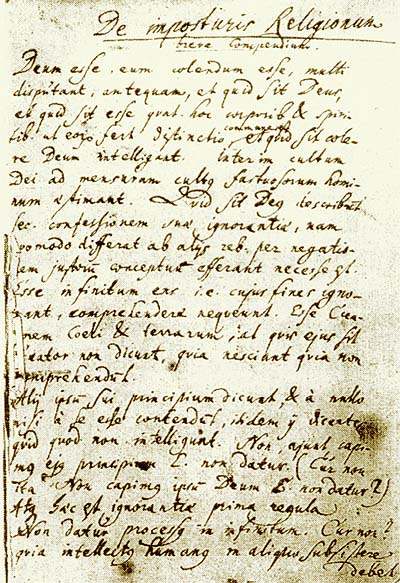 De imposturis Religionum
breve compendium.
Deum esse, eum colendum esse, multi
disputant, antequam, et quid sit Deus,
et quid sit esse quat. hoc corporib & spiri-
tib. ut eorũ fert distinctio communis est
et quid sit cole-
re Deum intelligant. Interim cultum
Dei ad mensuram cultq fastuosorum homi-
num æstimant. Quid sit Deq describũt
sec. confessionem suæ ignorantiæ, nam
quomodo differat ab aliis reb. per negatio-
nem justorũ conceptuũ efferant necesse ẽ.
Esse infinitum ens i.e. cujus fines igno-
rant, comprehendere nequeunt. Esse Crea-
torem Coeli & terrarum, at quis ejus sit
Creator non dicunt, quia nesciunt quia non
comprehendũt.
Alii ipsũ sui principium dicunt, & à nullo
nisi à se esse contendũt, itidem ii dicentes
quid quod non intelligunt. Non ajunt capi-
mq ejq principium E. non datur. (Cur non
ita Non capimq ipsũ Deum E. non datur?)
Atq hæc est ignorantiæ prima regula
Non datur processq in infinitum. Cur non?
quia intellectq humanq in aliquo subsistere
debet